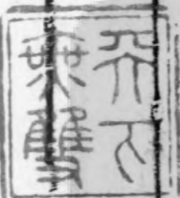 天下
無雙